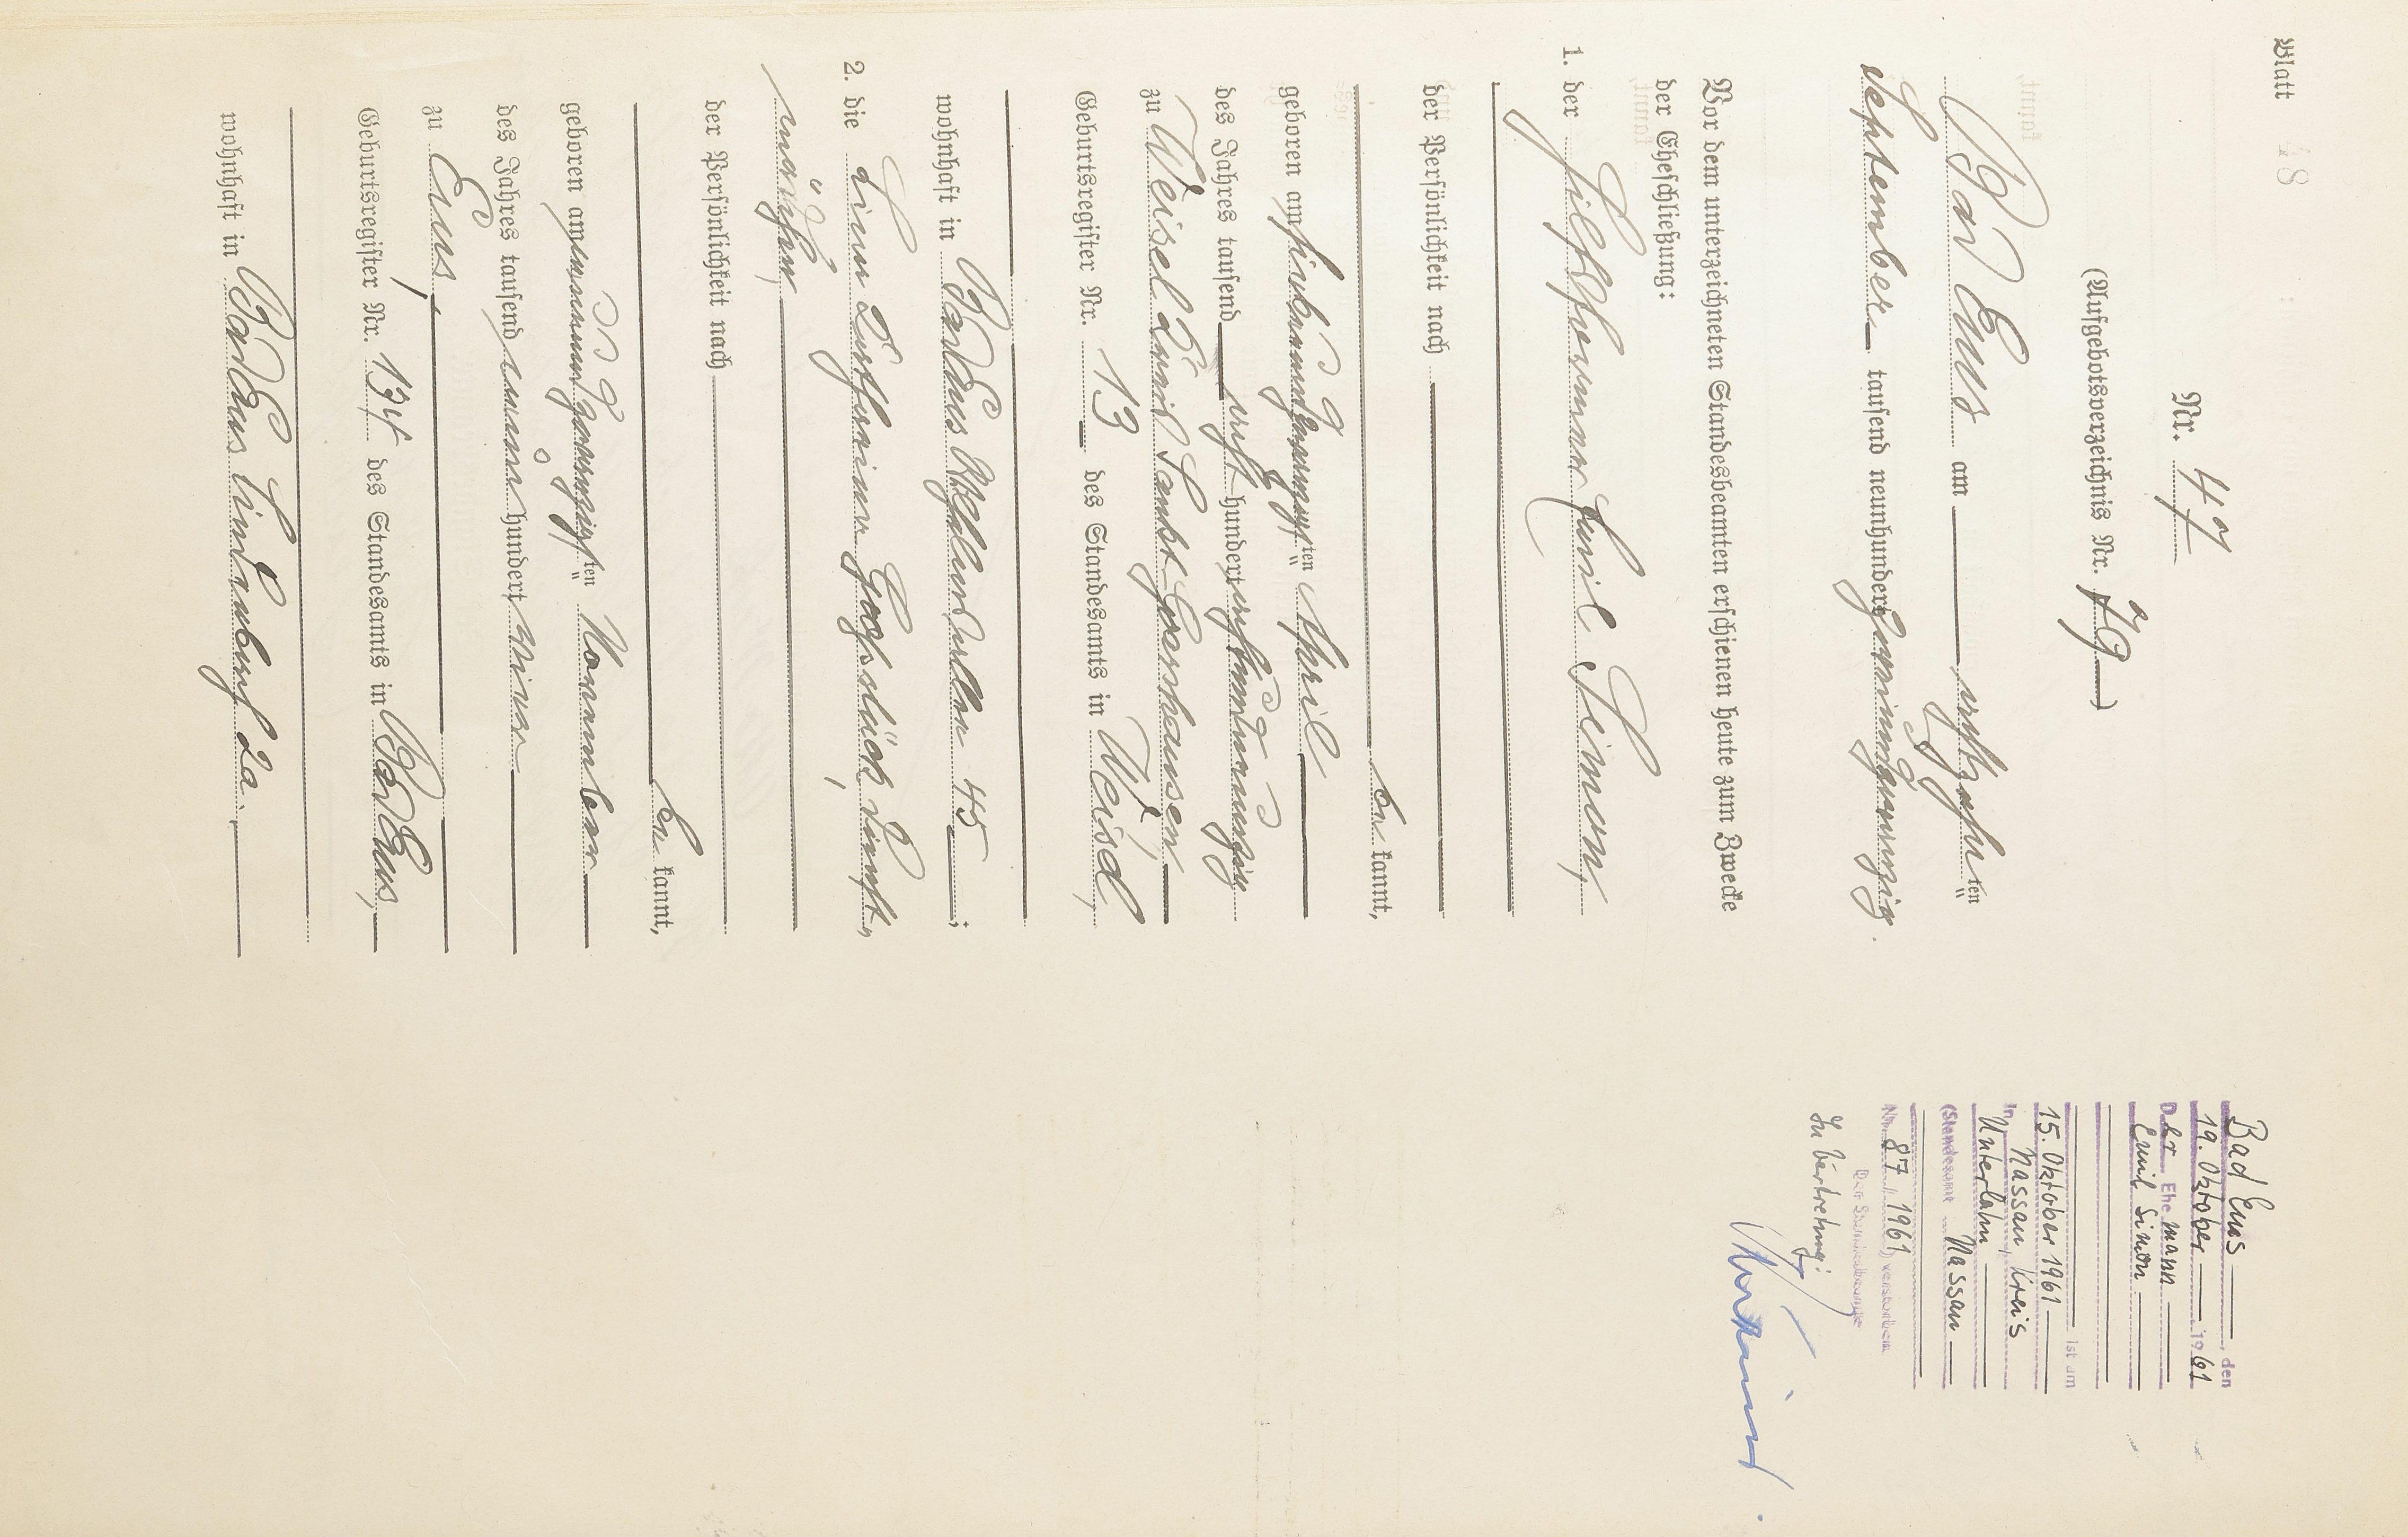 Blatt 48
Nr. 47
(Aufgebotsverzeichnis Nr. 79)
Bad Ems am achtzehnten
September tausend neunhundert zweiundzwanzig.
Vor dem unterzeichneten Standesbeamten erschienen heute zum Zwecke
der Eheschließung:
1. der Hilfsformer Emil Simon,
der Persönlichkeit nach
be kannt,
geboren am siebenundzwanzigsten April
des Jahres tausend acht hundert achtundneunzig
zu Weisel Kreis Sankt Goarshausen,
Geburtsregister Nr. 13 des Standesamts in Weisel,
wohnhaft in Bad Ems 45;
2. die Lina Katharina Dienst-
mädchen,
der Persönlichkeit nach
be kannt,
geboren am November
des Jahres tausend neun hundert
zu Ems,
Geburtsregister Nr. 134 des Standesamts in Bad Ems,
wohnhaft in Bad Ems Lindenbach 2a.
Bad Ems, den
19. Oktober 1961
Der Ehemann
Emil Simon
ist am
15. Oktober 1961
in Nassau, Kreis
Unterlahn
(Standesamt Nassau
Nr. 87/1961) verstorben
Der Standesbeamte
In Vertretung: